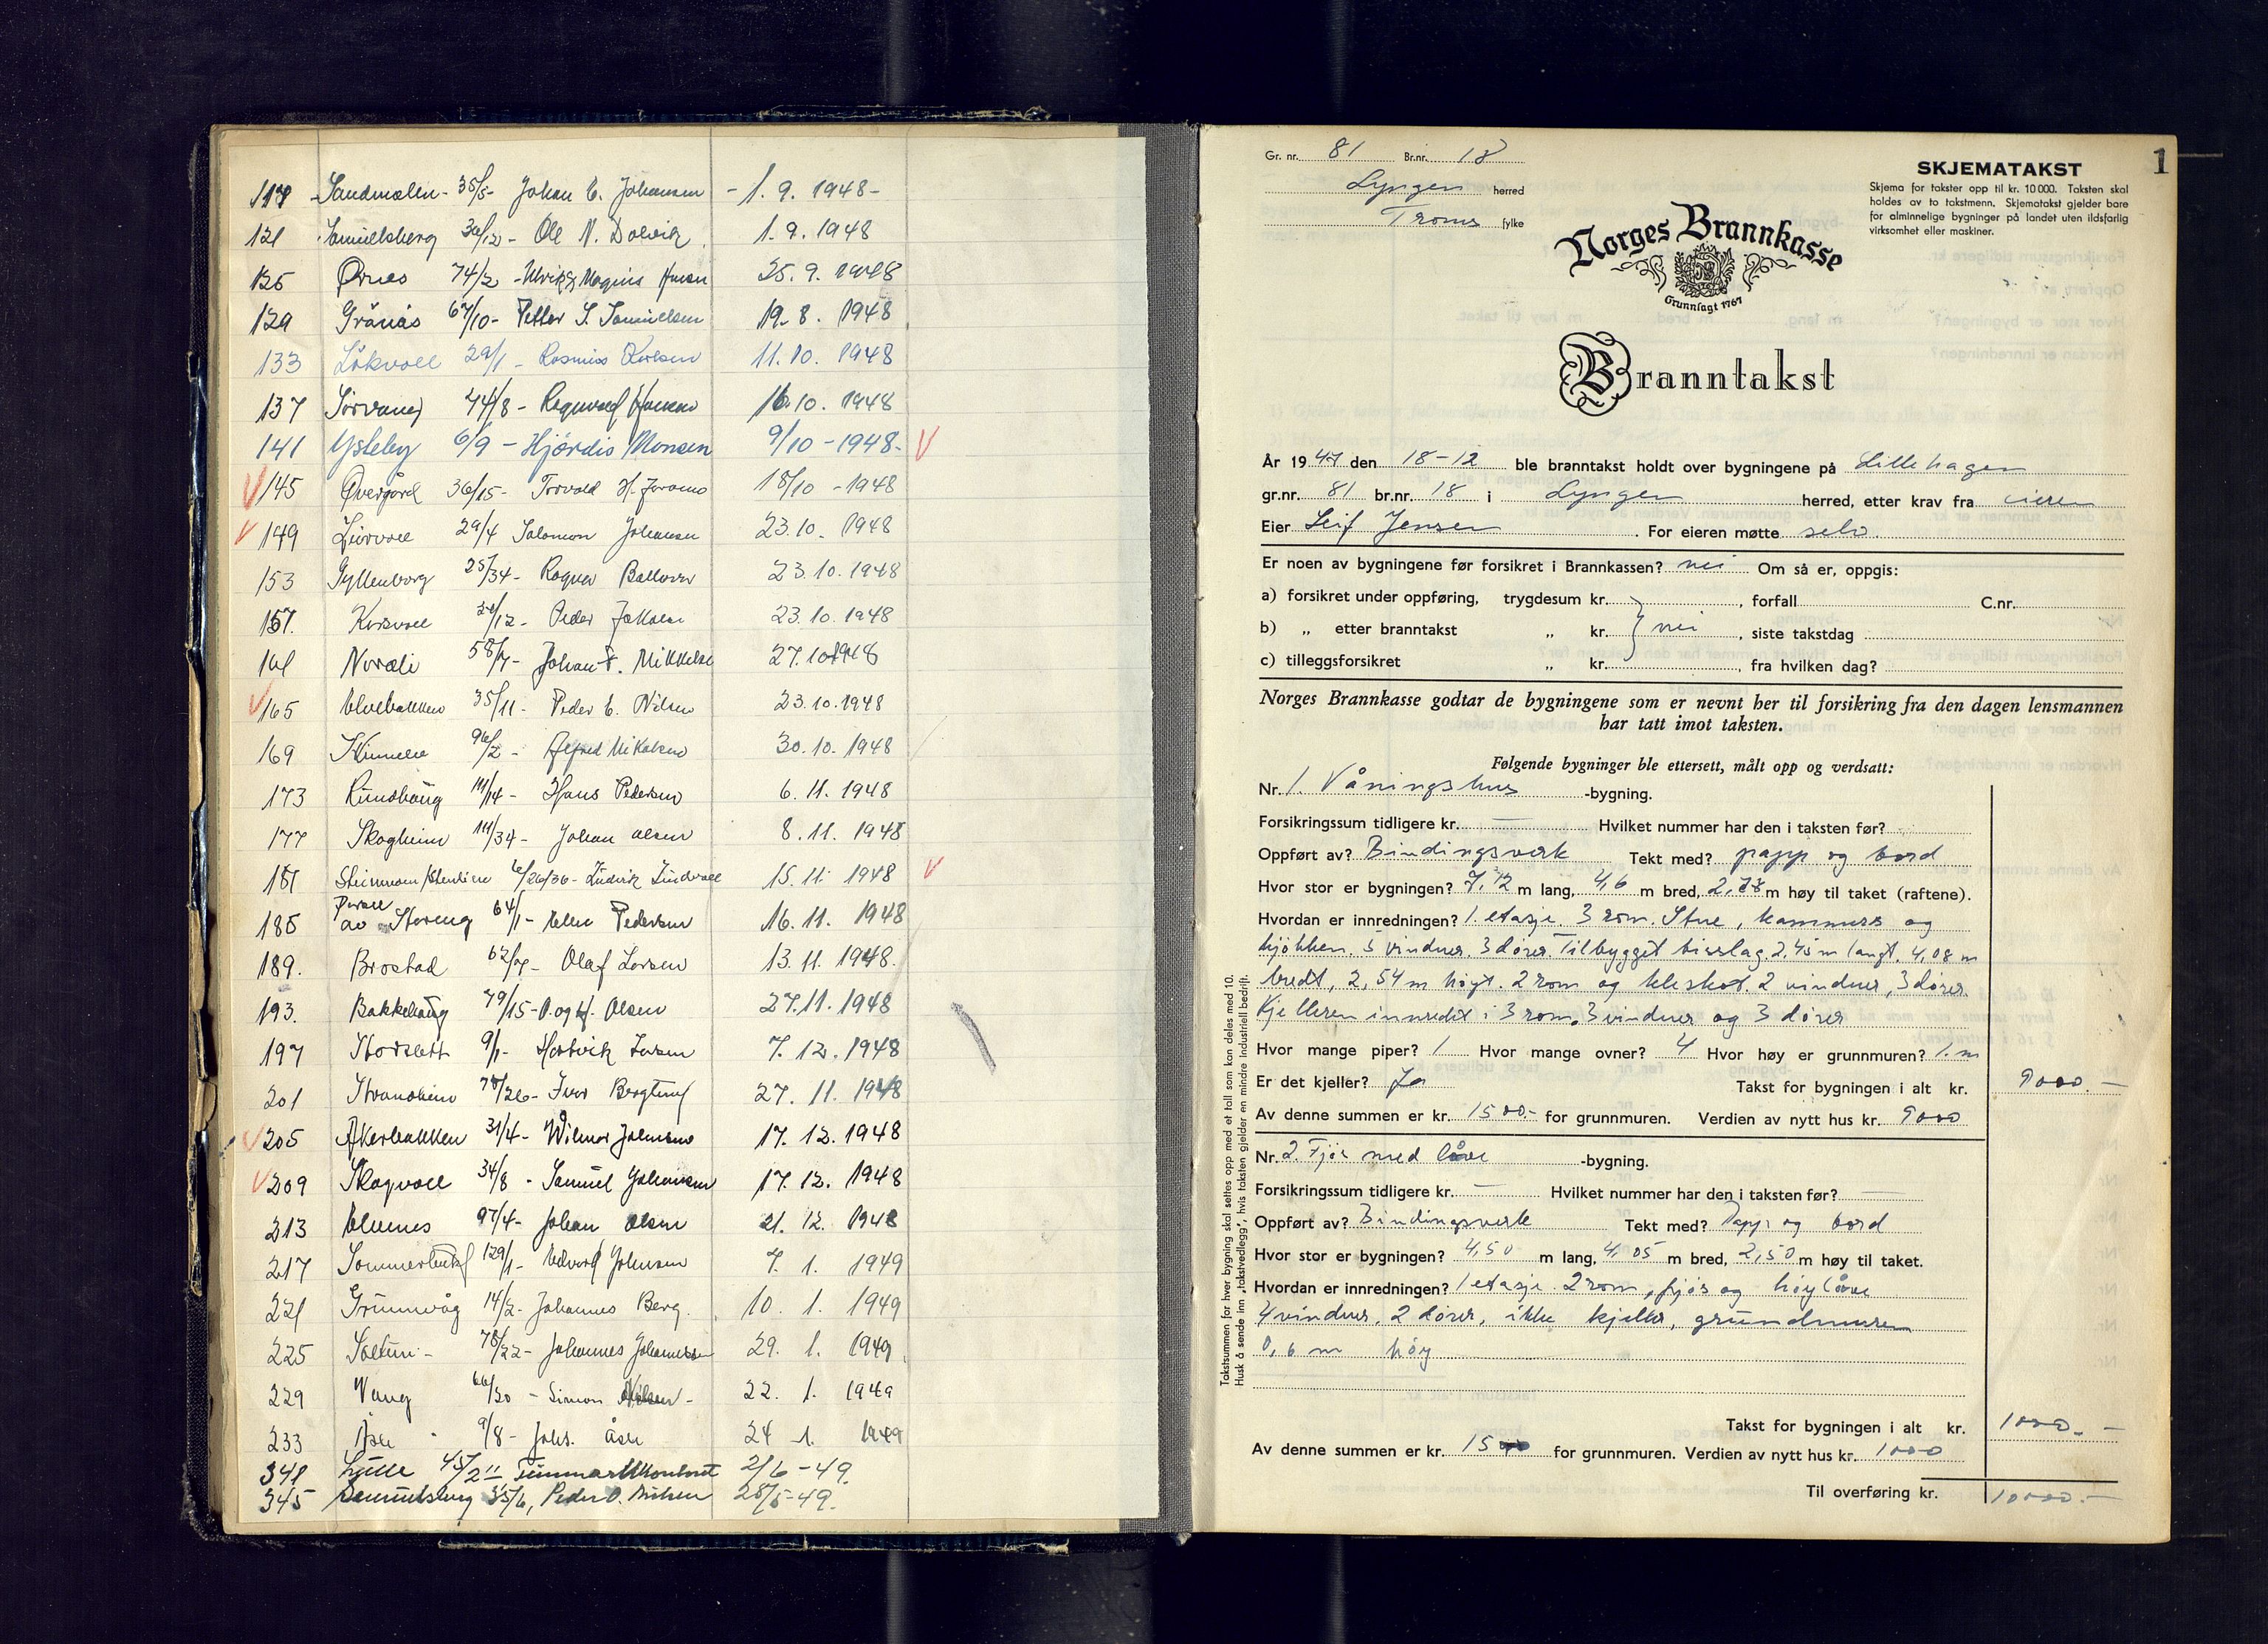 117 Sandmælen - 35/5 - Johan E. Johansen - 1. 9. 1948 -
121 Samuelsberg 36/12 - Ole N. Dalvik 1. 9. 1948
125 Ørnes 74/2 - Ulrik & Magnus Hansen 25. 9. 1948
129 Grånås 67/10 - Petter S. Samuelsen 19. 8. 1948
133 Løkvoll 29/1 - Rasmus Karlsen 11. 10. 1948
137 Sørvang 44/8 - Ragnvald Hansen 16. 10. 1948
141 Ysteby 6/9 - Hjördis Monsen 9/10 - 1948 -
145 Øvergård 36/15 - Torvald H. 18/10 - 1948
149 29/4 Salomon Johansen 23. 10. 1948
153 Gyllenborg 25/34 - Ragnar 23. 10. 1948
157. Korsvoll /12 - Peder 23. 10. 1948
161 Nordli 58/7 - Johan Mikkelsen 27. 10. 1948
165 Elvebakken 35/11 - Peder E. Nilsen 23. 10. 1948
169 96/2 - Alfred Mikalsen 30. 10. 1948
173 Rundhaug 111/14 - Hans Pedersen 6. 11. 1948
177 Skogheim 111/34 - Johan Olsen 8. 11. 1948
181 6/26/36 - Ludvik Lindvall 15. 11. 1948
Parsell
185 av Storeng 64/1 - Ellen Pedersen 16. 11. 1948
189. Brostad 62/7 - Olaf Larsen 13. 11. 1948.
193. Bakkehaug 79/15 - O. og H. Olsen 27. 11. 1948
197 Storslett 9/1 - Hartvik Larsen 7. 12. 1948
201 Strandheim 78/26 - Ivar Bergtun 27. 11. 1948
205 Åkerbakken 31/4 - Wilmar Johnsen 17. 12. 1948
209 Skogvoll 34/8 - Samuel Johansen 17. 12. 1948
213 Elvenes 97/4 - Johan Olsen 21. 12. 1948
217 129/1 - Edvard Johnsen 7. 1. 1949
221 Grunnvåg 14/2 - Johannes Berg. 10. 1. 1949
225 Soltun - 78/22 - Johannes Johannessen 29. 1. 1949
229 Vang 66/30 - Simon Nilsen - 22. 1. 1949
233 Åse 9/8 - Johs. Åse 24 - 1. 1949
341 45/2 2/6 - 49.
345 Samuelsberg 35/6, Peder O. Nilsen 28/5 - 49.
1
Gr. nr. 81 Br.nr. 18
Lyngen herred
Troms fylke
SKJEMATAKST
Skjema for takster opp til kr. 10 000. Taksten skal
holdes av to takstmenn. Skjematakst gjelder bare
for alminnelige bygninger på landet uten ildsfarlig
virksomhet eller maskiner.
Norges Brannkasse
Grunnlagt 1767
Branntakst
År 1947 den 18-12 ble branntakst holdt over bygningene på Lillehagen
gr.nr. 81 br.nr. 18 i Lyngen herred, etter krav fra eieren
Eier Leif Jensen. For eieren møtte selv.
Er noen av bygningene før forsikret i Brannkassen? nei Om så er, oppgis:
a) forsikret under oppføring, trygdesum kr. , forfall C.nr.
b) „ etter branntakst „ kr. nei , siste takstdag
c) tilleggsforsikret „ kr. , fra hvilken dag?
Norges Brannkasse godtar de bygningene som er nevnt her til forsikring fra den dagen lensmannen
har tatt imot taksten.
Følgende bygninger ble ettersett, målt opp og verdsatt:
Nr. 1. Våningshus -bygning.
Forsikringssum tidligere kr. — Hvilket nummer har den i taksten før?
Oppført av? Bindingsverk Tekt med? papp og bord
Hvor stor er bygningen? 7,12 m lang, 4,6 m bred, 2,78 m høy til taket (raftene).
Hvordan er innredningen? 1. etasje 3 rom. Stue, kammers og
kjøkken. 5 vinduer. 3 dører. Tilbygget bisslag 2,45 m langt. 4,08 m
bredt, 2,54 m høgt. 2 rom og kleskot. 2 vinduer, 3 dører.
Kjelleren innredet i 3 rom. 3 vinduer og 3 dører
Hvor mange piper? 1 Hvor mange ovner? 4 Hvor høy er grunnmuren? 1. m
Er det kjeller? Ja Takst for bygningen i alt kr. 9000.—
Av denne summen er kr. 1500.- for grunnmuren. Verdien av nytt hus kr. 9000
Nr. 2. Fjøs med låve -bygning.
Forsikringssum tidligere kr. — Hvilket nummer har den i taksten før? —
Oppført av? Bindingsverk Tekt med? Papp og bord
Hvor stor er bygningen? 4,50 m lang, 4,05 m bred, 2,50 m høy til taket.
Hvordan er innredningen? 1 etasje. 2 rom, fjøs og høylåve
4 vinduer, 2 dører, ikke kjeller, grundmuren
0,6 m høy
Takst for bygningen i alt kr. 1000.—
Av denne summen er kr. 15 for grunnmuren. Verdien av nytt hus kr. 1000
Til overføring kr. 10000.—
Takstsummen for hver bygning skal settes opp med et tall som kan deles med 10.
Husk å sende inn „takstvedlegg", hvis taksten gjelder en mindre industriell bedrift.